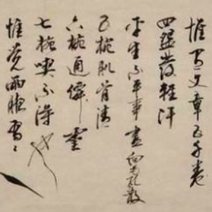 惟有文章五千卷
四盌發輕汗
平生不平事盡向毛孔散
五椀肌骨清
六椀通僊靈
七椀喫不得
也
惟覺兩腋習〻